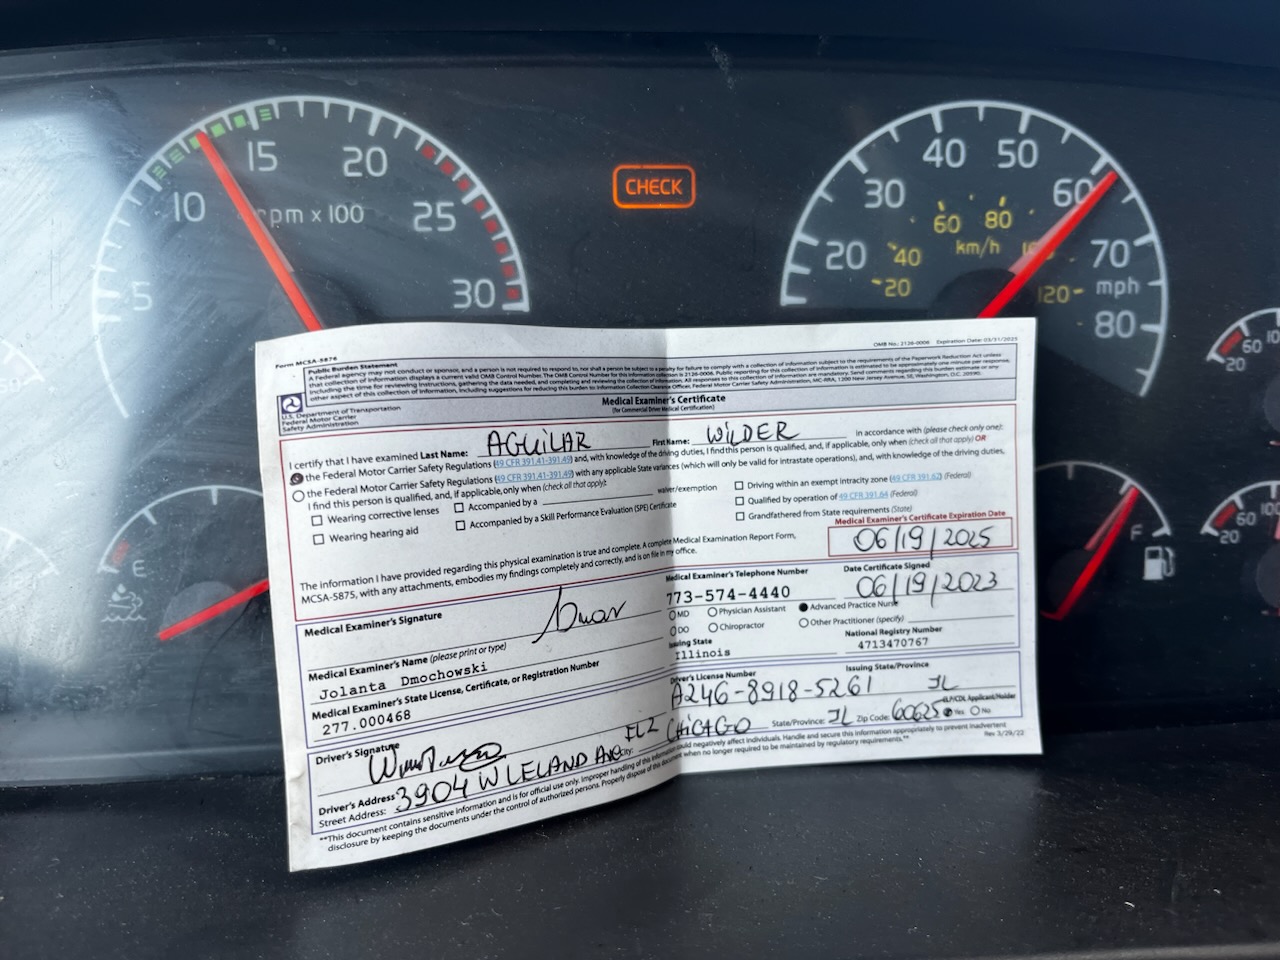 15
20
10
rpm x 100
25
5
30
CHECK
40
50
30
60
60
80
km/h
20
40
70
20
120
mph
80
E
F
60
20
60
100
20
Form MCSA-5876
OMB No.: 2126-0006 Expiration Date: 03/31/2025
Public Burden Statement
A Federal agency may not conduct or sponsor, and a person is not required to respond to, nor shall a person be subject to a penalty for failure to comply with a collection of information subject to the requirements of the Paperwork Reduction Act unless
that collection of information displays a current valid OMB Control Number.
U.S. Department of Transportation
Federal Motor Carrier
Safety Administration
Medical Examiner's Certificate
(for Commercial Driver Medical Certification)
I certify that I have examined Last Name: AGUILAR First Name: WILDER in accordance with (please check only one):
the Federal Motor Carrier Safety Regulations (49 CFR 391.41-391.49) and, with knowledge of the driving duties, I find this person is qualified, and, if applicable, only when (check all that apply) OR
the Federal Motor Carrier Safety Regulations (49 CFR 391.41-391.49) with any applicable State variances (which will only be valid for intrastate operations), and, with knowledge of the driving duties,
I find this person is qualified, and, if applicable, only when (check all that apply):
Wearing corrective lenses
Accompanied by a
waiver/exemption
Driving within an exempt intracity zone (49 CFR 391.62) (Federal)
Wearing hearing aid
Accompanied by a Skill Performance Evaluation (SPE) Certificate
Qualified by operation of 49 CFR 391.64 (Federal)
Grandfathered from State requirements (State)
The information I have provided regarding this physical examination is true and complete. A complete Medical Examination Report Form,
MCSA-5875, with any attachments, embodies my findings completely and correctly, and is on file in my office.
Medical Examiner's Certificate Expiration Date
06/19/2025
Medical Examiner's Signature
Medical Examiner's Telephone Number
773-574-4440
Date Certificate Signed
06/19/2023
Medical Examiner's Name (please print or type)
Jolanta Dmochowski
MD
Physician Assistant
Advanced Practice Nurse
DO
Chiropractor
Other Practitioner (specify)
Medical Examiner's State License, Certificate, or Registration Number
277.000468
Issuing State
Illinois
National Registry Number
4713470767
Driver's Signature
Driver's License Number
A246-8918-5261
Issuing State/Province
IL
Driver's Address
Street Address: 3904 W LELAND AVE FL2 City: CHICAGO State/Province: IL Zip Code: 60625
CLP/CDL Applicant/Holder
Yes No
**This document contains sensitive information and is for official use only. Improper handling of this information could negatively affect individuals. Handle and secure this information appropriately to prevent inadvertent
disclosure by keeping the documents under the control of authorized persons. Properly dispose of this document when no longer required to be maintained by regulatory requirements.**
Rev 3/29/22